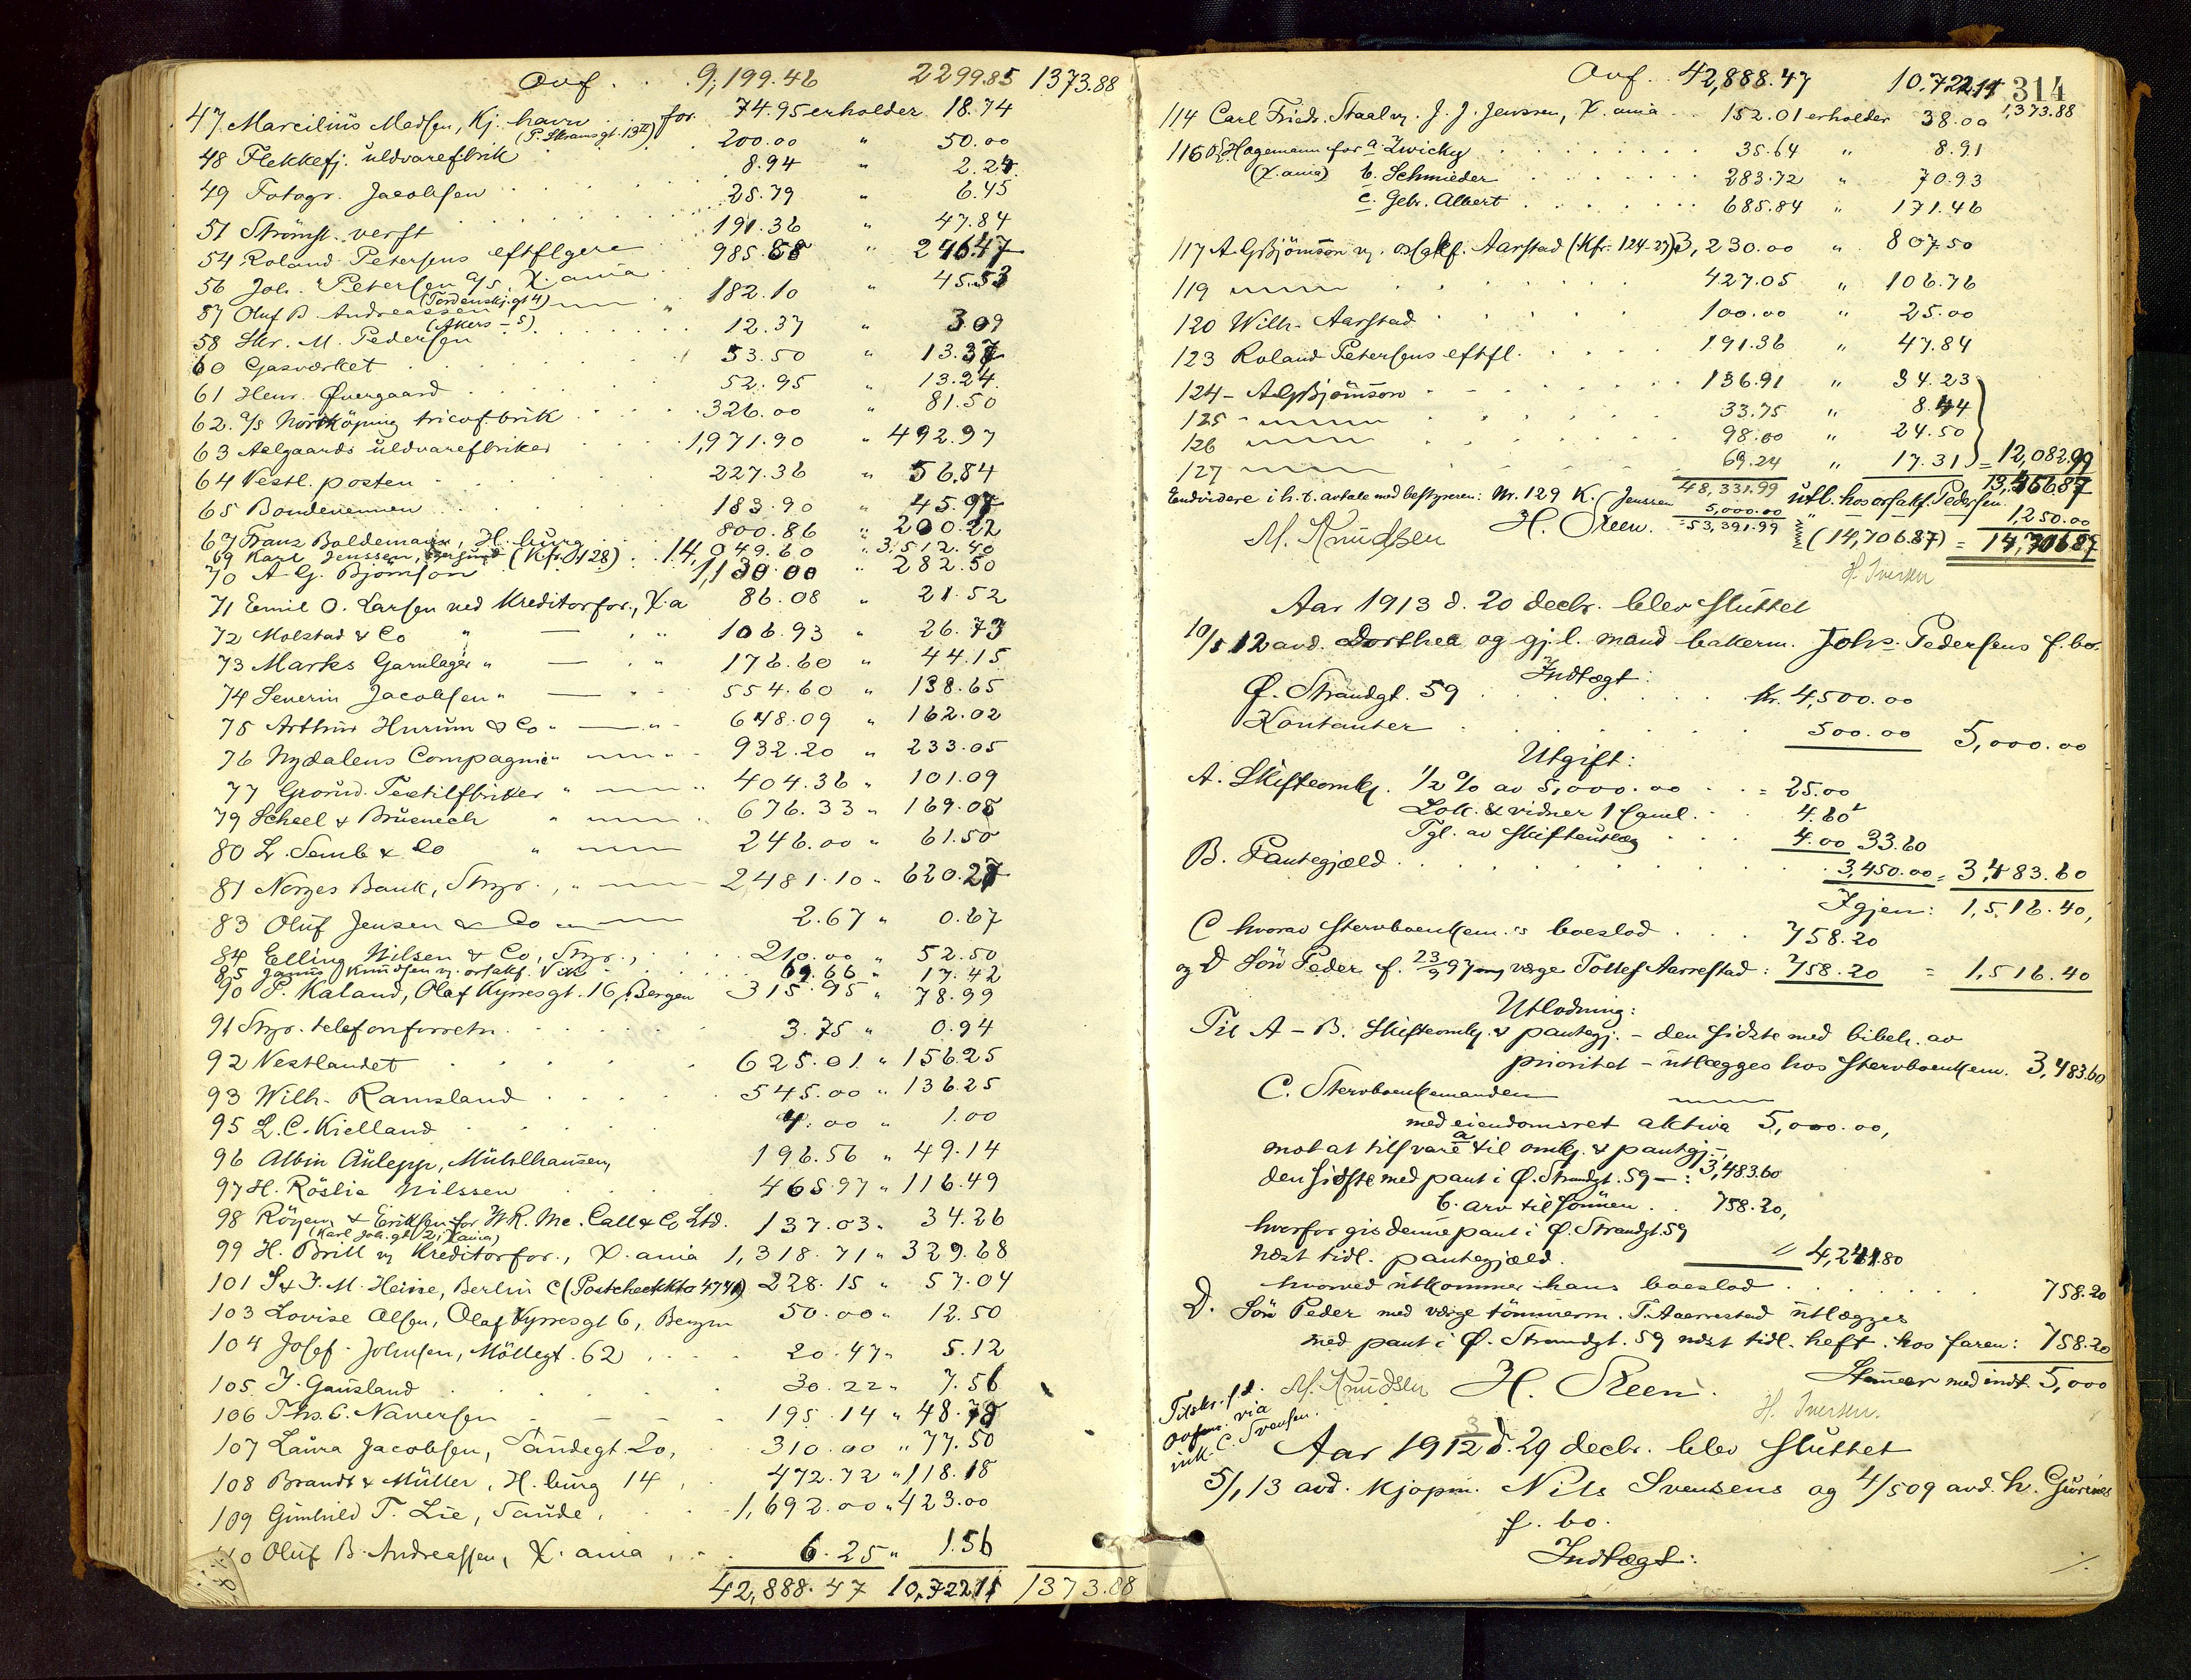 Ovf. . . 9,199.46 2299.85 1373.88
47 Marcilius Madsen, Kj.havn . . for 74.95 erholder 18.74
(P. Skramsgt. 13 II)
48 Flekkefj. uldvarefbrik . . 200.00 " 50.00
49 Fotogr. Jacobsen . . 8.94 " 2.24
51 Strömst. verft . . 25.79 " 6.45
54 Roland Petersens eftflgere . . 191.36 " 47.84
56 Joh. Petersen a/s, X.ania . . 985.68 " 246.47
(Tordenskj.gt 4)
57 Oluf B. Andreassen " 182.10 " 45.53
(Akers – 5)
58 Skr. M. Pedersen . . 12.37 " 3.09
60 Gasværket . . 53.50 " 13.37
61 Henr. Øvergaard . . 52.95 " 13.24
62 a/s Norrköping tricof.brik . . 326.00 " 81.50
63 Aalgaards uldvarefbriker . . 1,971.90 " 492.97
64 Vestl. posten . . 227.36 " 56.84
65 Bondevennen . . 183.90 " 45.97
67 Franz Boldemann, H.burg . . 800.86 " 200.22
69 Karl Jenssen, Egersund (Kfr. 128) . 14,049.60 " 3,512.40
70 A. G. Björnson 1,130.00 " 282.50
71 Emil O. Larsen ved Kreditorfor., X.a 86.08 " 21.52
72 Molstad & Co " — " 106.93 " 26.73
73 Marks Garnlager " — " 176.60 " 44.15
74 Severin Jacobsen " — " 554.60 " 138.65
75 Arthur Hurum & Co " — " 648.09 " 162.02
76 Nydalens Compagnie " — " 932.20 " 233.05
77 Grorud Textilfbriker " — " 404.36 " 101.09
79 Scheel & Bruenech " — " 676.33 " 169.08
80 L. Semb & Co " — 246.00 " 61.50
81 Norges Bank, Stvgr., " — 2481.10 " 620.27
83 Oluf Jensen & Co " — 2.67 " 0.67
84 Elling Nilsen & Co, Stvgr., . . 210.00 " 52.50
85 Janus Knudsen v. orsakf. Vik . . 69.66 " 17.42
90 P. Kaland, Olaf Kyrresgt. 16, Bergen 315.95 " 78.99
91 Stvgr. telefonforretn. . . 3.75 " 0.94
92 Vestlandet . . 625.01 " 156.25
93 Wilh. Ramsland . . 545.00 " 136.25
95 L. C. Kielland . . 4.00 " 1.00
96 Albin Aulepp, Mühlhausen, 196.56 " 49.14
97 H. Röslie Nilssen . . 465.97 " 116.49
98 Röyem & Eriksen for W. R. Mc. Call & Co Ltd. 137.03 " 34.26
(Karl Joh. gt 2, X.ania)
99 H. Brill v. Kreditorfor., X.ania 1,318.71 " 329.68
101 S & J. M. Heine, Berlin C (Postcheckkto 4741) 228.15 " 57.04
103 Lovise Olsen, Olaf Kyrresgt 6, Bergen 50.00 " 12.50
104 Josef Johnsen, Möllegt. 62 . . 20.47 " 5.12
105 J. Gausland . . 30.22 " 7.56
106 Ths. C. Naversen . . 195.14 " 48.78
107 Laura Jacobsen, Sandegt 20, . . 310.00 " 77.50
108 Brandt & Müller, H.burg 14, 472.72 " 118.18
109 Gunhild T. Lie, Saude, . . 1,692.00 " 423.00
110 Oluf B. Andreassen, X.ania . . 6.25 " 1.56
42,888.47 10,722.11 1373.88
Ovf. . 42,888.47 10,722.11 314
1,373.88
114 Carl Fredr. Staal v. J. J. Jenssen, X.ania . . 152.01 erholder 38.00
116 O. Hagemann for a. Zwicky . . 35.64 " 8.91
(X.ania) b. Schmieder . . 283.72 " 70.93
c. Gebr. Albert . . 685.84 " 171.46
117 A. G. Björnson v. o.r.sakf. Aarstad (Kfr. 124-27) 3,230.00 " 807.50
119 — . . 427.05 " 106.76
120 Wilh. Aarstad . . 100.00 " 25.00
123 Roland Petersens eftfl. . . 191.36 " 47.84
124 – A. G. Björnson . . 136.91 " 34.23
125 – — . . 33.75 " 8.44
126 — . . 98.00 " 24.50
127 — . . 69.24 " 17.31 = 12,082.99
48,331.99 13,456.87
Endvidere i h.t. avtale med bestyreren: Nr. 129 K. Jenssen 5,000.00 utl. hos orsakf. Pedersen 1,250.00
M. Knudsen H. Steen. = 53,391.99 (14,706.87) = 14,706.87
H. Iversen
Aar 1913 d. 20 decbr. blev sluttet
10/5 12 avd. Dorthea og gj.l. mand bakerm. Johs. Pedersens f. bo.
Indtægt:
Ø. Strandgt. 59 . . kr. 4,500.00
Kontanter . . 500.00 5,000.00
Utgift:
A. Skifteomk. 1/2 % av 5,000.00 . . = 25.00
Lok. & vidner 1 saml. . . 4.60
Tgl. av skifteutlæg . . 4.00 33.60
B. Pantegjæld . . 3,450.00 = 3,483.60
Igjen: 1,516.40,
C hvorav stervboenkem.s boeslod . . . 758.20
og D Sön Peder f. 23/9 97 m/ værge Tollef Aarrestad: 758.20 = 1,516.40
Utlodning:
Til A – B. Skifteomk. & pantegj. – den sidste med bibeh. av
prioritet – utlægges hos stervboenkem. 3,483.60
C. Stervboenkemanden —
med eiendomsret aktiva 5,000.00,
mot at tilsvare a til omk. & pantgj. –
den sidste med pant i Ø. Strandgt. 59 – : 3,483.60
b. arv til sönnen . . 758.20,
hvorfor gis denne pant i Ø. Strandgt. 59
næst tidl. pantegjæld. " 4,241.80
hvorved utkommer hans boeslod . . 758.20
D. Sön Peder med værge tömmerm. T. Aarrestad utlægges
med pant i Ø. Strandgt. 59 næst tidl. heft. hos faren: 758.20
Stemmer med indt. 5,000
M. Knudsen H. Steen. H. Iversen.
Tilskr. f.d.
via
ink. C. Svensen.
Aar 1913 d. 29 decbr. blev sluttet
5/1 13 avd. kjøpm. Nils Svensens og 4/5 09 avd. h. Gurines
f. bo.
Indtægt:
./.